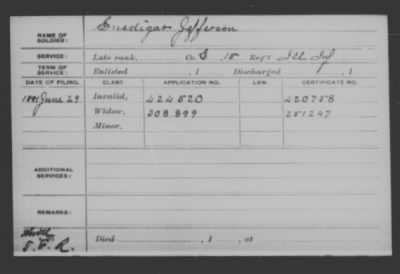 NAME OF SOLDIER: Snedigar Jefferson
SERVICE: Late rank, Co. G, 15 Reg't Ill Inf
TERM OF SERVICE: Enlisted , 1 Discharged , 1
DATE OF FILING. CLASS. APPLICATION NO. LAW. CERTIFICATE NO.
1881 June 29 Invalid, 424520 420758
Widow, 308899 251247
Minor,
ADDITIONAL SERVICES:
REMARKS:
Died , 1 , at